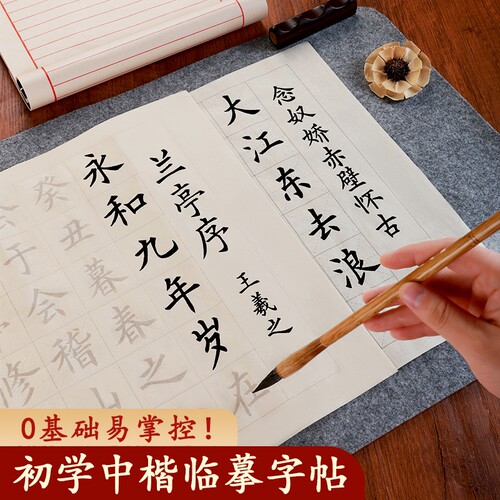 念奴娇赤壁怀古
大江东去浪
兰亭序 王羲之
永和九年岁在
癸丑暮春之
会于会稽山
修
0基础易掌控！
初学中楷临摹字帖